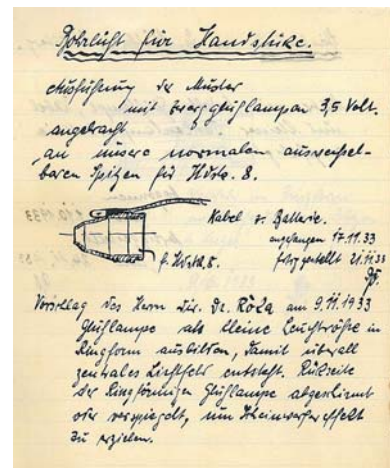 Bohrlicht für Handstücke.
Ausführung der Muster
mit Zwergglühlampen 3,5 Volt.
angebracht
an unsere normalen auswechsel-
baren Spitzen für Hdst. 8.
Kabel z. Batterie.
angefangen 17.11.33
fertiggestellt 21.11.33
f. Hdst. 8.
Vorschlag des Herrn Dir. Dr. Roza am 9.11.1933
Glühlampe als kleine Leuchtröhre in
Ringform ausbilden, damit überall
zentrales Lichtfeld entsteht. Rückseite
der Ringförmigen Glühlampe abgeschirmt
oder verspiegelt, um Scheinwerfereffekt
zu erzielen.